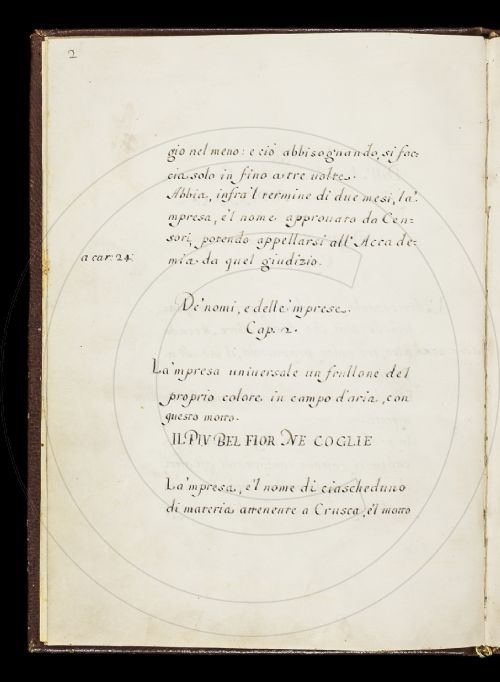 2
gio nel meno: e ciò abbisognando, si fac-
cia solo in fino a tre volte.
Abbia, infra'l termine di due mesi, la'
mpresa, e'l nome approuato da Cen-
sori, potendo appellarsi all'Accade-
a car: 24. mia da quel giudizio.
De'nomi, e delle'mprese.
Cap. 2.
La'mpresa universale un frullone del
proprio colore, in campo d'aria, con
questo motto.
IL PIV BEL FIOR NE COGLIE
La'mpresa, e'l nome di ciascheduno
di materia attenente a Crusca, e'l motto